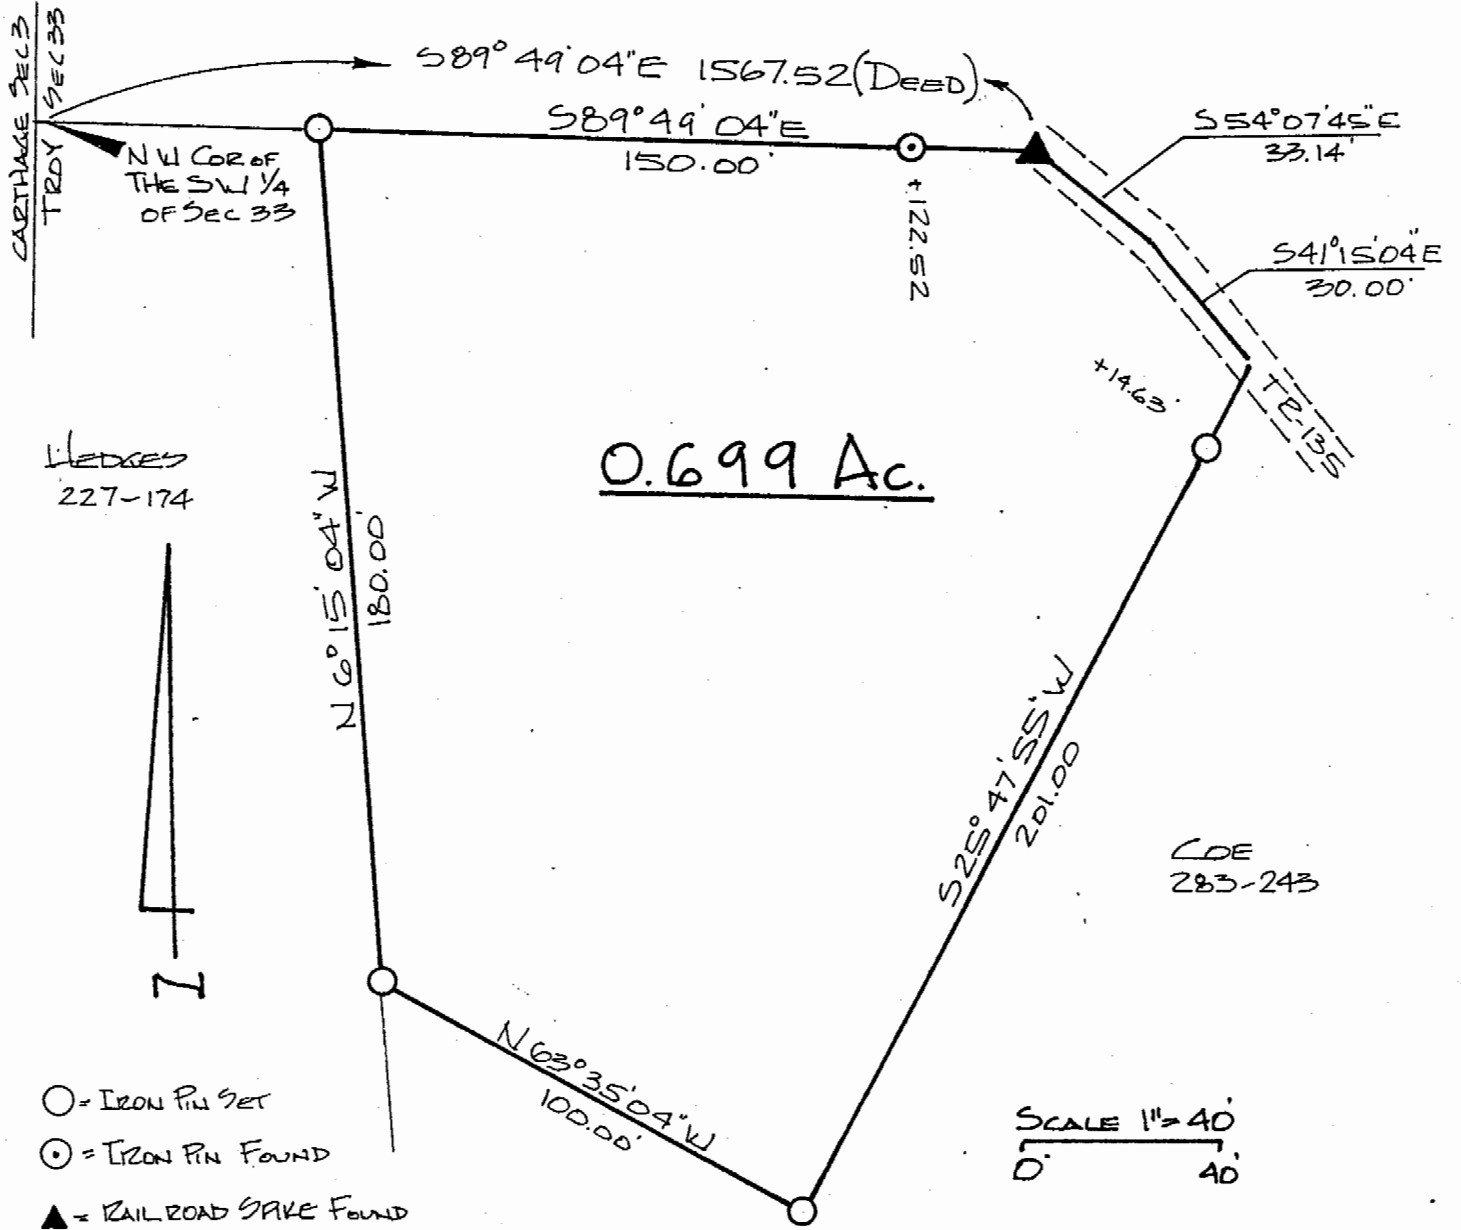 CARTHAGE SEC 3
TROY SEC 33
S89° 49' 04"E 1567.52 (DEED)
S89° 49' 04"E
150.00'
N W COR OF
THE SW 1/4
OF SEC 33
+122.52
S54°07'45"E
33.14'
S41°15'04"E
30.00'
+14.63'
TR-135
HEDGES
227-174
0.699 Ac.
N 6° 15' 04" W
180.00'
S25° 47' 55" W
201.00
COE
283-243
N 63° 35' 04" W
100.00'
N
○ = IRON PIN SET
⊙ = IRON PIN FOUND
▲ = RAILROAD SPIKE FOUND
SCALE 1" = 40'
0' 40'